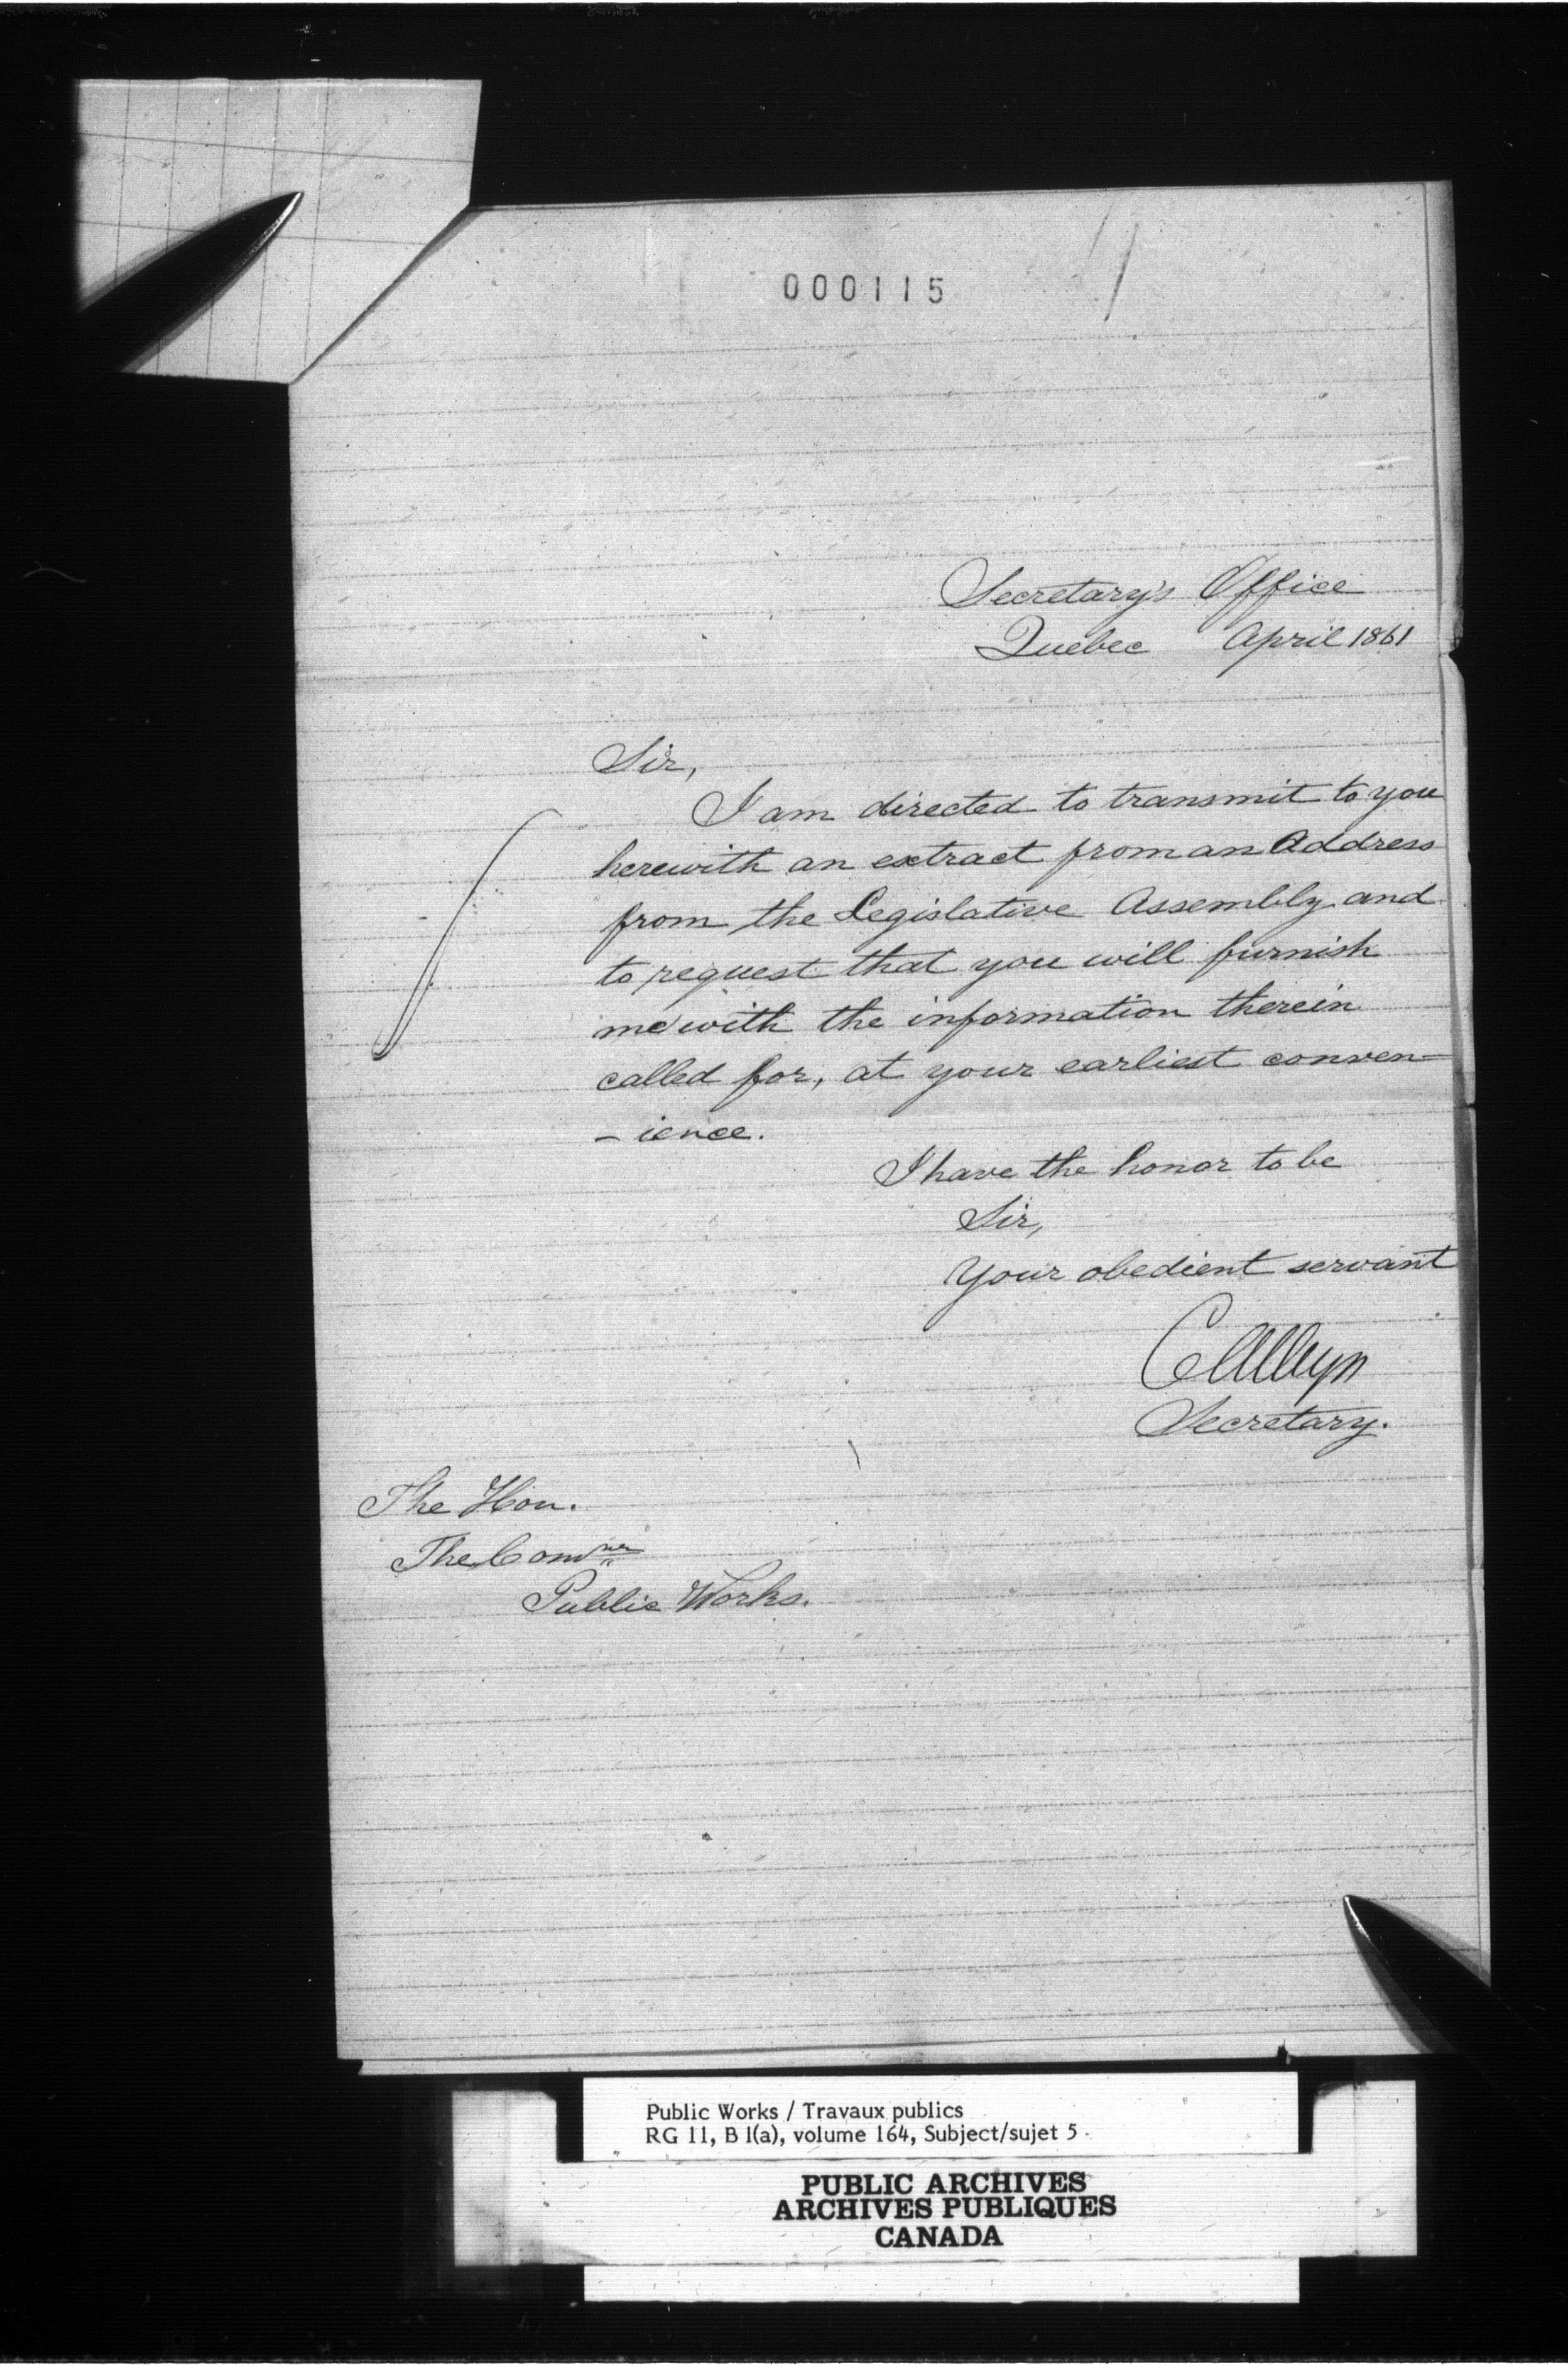 000115
Secretary's Office
Quebec April 1861
Sir,
I am directed to transmit to you
herewith an extract from an Address
from the Legislative Assembly and
to request that you will furnish
me with the information therein
called for, at your earliest conven-
- ience.
I have the honor to be
Sir,
Your obedient servant
C Alleyn
Secretary.
The Hon.
The Comner
Public Works.
Public Works / Travaux publics
RG 11, B 1(a), volume 164, Subject/sujet 5
PUBLIC ARCHIVES
ARCHIVES PUBLIQUES
CANADA